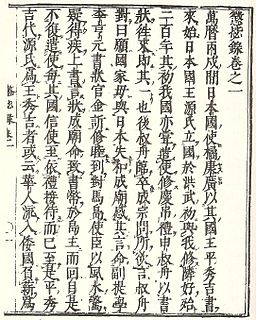 懲毖錄卷之一
萬曆丙戌間日本國使橘康廣以其國王平秀吉書
來始日本國王源氏立國於洪武初與我修隣好殆
二百年其初我國亦嘗遣使修慶吊禮申叔舟以書
狀往來卽其一也後叔舟臨卒成宗問所欲言叔舟
對曰願國家毋與日本失和成廟感其言命副提學
李亨元書狀官金訢修睦到對馬島使臣以風水驚
疑得疾上書言狀成廟命致書幣於島主而回自是
不復遣使每其國信使至依禮接待而已至是平秀
吉代源氏爲王秀吉者或云華人流入倭國負薪爲